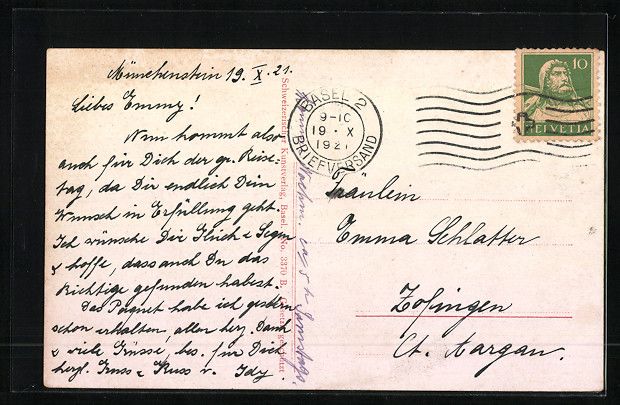 Münchenstein 19. X. 21.
Liebes Emmy!
Nun kommt also
auch für Dich der gr. Reise=
tag, da Dir endlich Dein
Wunsch in Erfüllung geht.
Ich wünsche Dir Glück & Segen
& hoffe, dass auch Du das
Richtige gefunden habest.
Das Paquet habe ich gestern
schon erhalten, aller herz. Dank
& viele Grüsse, bes. für Dich
herzl. Gruss & Kuss v. Idy.
Schweizerischer Kunstverlag, Basel. No. 3370 B.
Nachm. 5 h Samstags.
BASEL 2
9-10
19·X
1921
BRIEFVERSAND
10
HELVETIA
Fräulein
Emma Schlatter
Zofingen
Ct. Aargau.